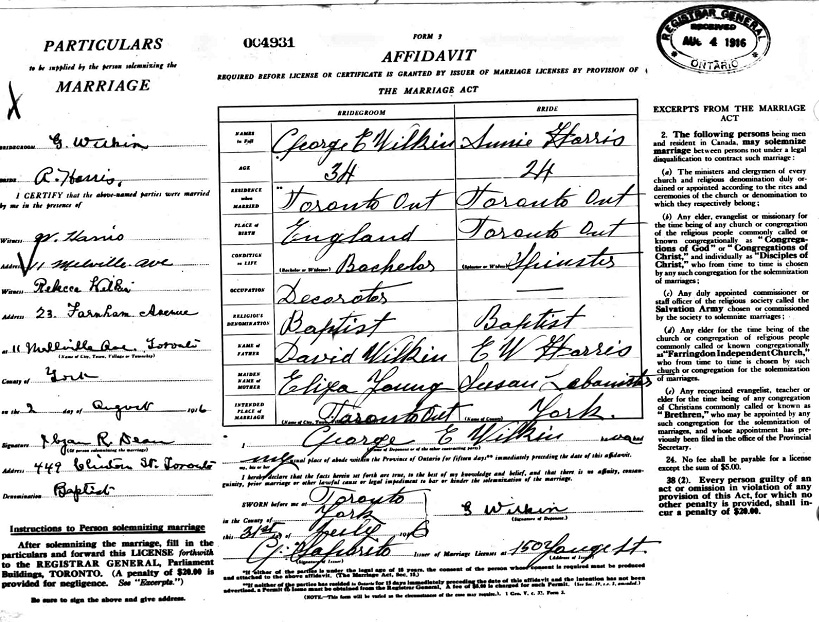 PARTICULARS
to be supplied by the person solemnizing the
MARRIAGE
X
BRIDEGROOM G. Wilkin
BRIDE A. Harris,
I CERTIFY that the above-named parties were married
by me in the presence of
Witness W. Harris
Address 11 Melville Ave
Witness Rebecca Wilkin
Address 23. Farnham Avenue
at 11 Melville Ave Toronto
(Name of City, Town, Village or Township)
County of York
on the 2 day of August 1916
Signature R. Dean
(Of person solemnizing the marriage)
Address 449 Clinton St. Toronto
Denomination Baptist
Instructions to Person solemnizing marriage
After solemnizing the marriage, fill in the
particulars and forward this LICENSE forthwith
to the REGISTRAR GENERAL, Parliament
Buildings, TORONTO. (A penalty of $20.00 is
provided for negligence. See "Excerpts.")
Be sure to sign the above and give address.
004931
FORM 3
AFFIDAVIT
REQUIRED BEFORE LICENSE OR CERTIFICATE IS GRANTED BY ISSUER OF MARRIAGE LICENSES BY PROVISION OF
THE MARRIAGE ACT
BRIDEGROOM BRIDE
NAMES in Full George E Wilkin Annie Harris
AGE 34 24
RESIDENCE when MARRIED Toronto Ont Toronto Ont
PLACE of BIRTH England Toronto Ont
CONDITION in LIFE (Bachelor or Widower) Bachelor (Spinster or Widow) Spinster
OCCUPATION Decorator —
RELIGIOUS DENOMINATION Baptist Baptist
NAME of FATHER David Wilkin E W Harris
MAIDEN NAME of MOTHER Eliza Young Susan
INTENDED PLACE of MARRIAGE Toronto Ont York.
I George E Wilkin
my usual place of abode within the Province of Ontario for fifteen days** immediately preceding the date of this affidavit.
I hereby declare that the facts herein set forth are true, to the best of my knowledge and belief, and that there is no affinity, consan-
guinity, prior marriage or other lawful cause or legal impediment to bar or hinder the solemnization of the marriage.
SWORN before me at Toronto
in the County of York G Wilkin
(Signature of Deponent)
this 31st day of July 1916
Issuer of Marriage License at 150 Yonge St
(Signature of Issuer) (Address of Issuer)
*If either of the parties is under the legal age of 18 years, the consent of the person whose consent is required must be produced
and attached to the above affidavit. (The Marriage Act, Sec. 15.)
**If neither of the parties has resided in Ontario for 15 days immediately preceding the date of this affidavit and the intention has not been
advertised, a Permit to Issue must be obtained from the Registrar General. A fee of $5.00 is charged for such Permit.
(NOTE.—This form will be varied as the circumstances of the case may require.) 1 Geo. V. c. 32, Form 3.
REGISTRAR GENERAL
RECEIVED
AUG 4 1916
ONTARIO
EXCERPTS FROM THE MARRIAGE
ACT
2. The following persons being men
and resident in Canada, may solemnize
marriage between persons not under a legal
disqualification to contract such marriage:
(a) The ministers and clergymen of every
church and religious denomination duly or-
dained or appointed according to the rites and
ceremonies of the church or denomination to
which they respectively belong;
(b) Any elder, evangelist or missionary for
the time being of any church or congregation
of the religious people commonly called or
known congregationally as "Congrega-
tions of God" or "Congregations of
Christ," and individually as "Disciples of
Christ," who from time to time is chosen
by any such congregation for the solemnization
of marriages;
(c) Any duly appointed commissioner or
staff officer of the religious society called the
Salvation Army chosen or commissioned
by the society to solemnize marriages;
(d) Any elder for the time being of the
church or congregation of religious people
commonly called or known as
"Farringdon Independent Church,"
who from time to time is chosen by such
church or congregation for the solemnization
of marriages.
(e) Any recognized evangelist, teacher or
elder for the time being of any congregation
of Christians commonly called or known as
"Brethren," who may be appointed by any
such congregation for the solemnization of
marriages, and whose appointment has pre-
viously been filed in the office of the Provincial
Secretary.
24. No fee shall be payable for a license
except the sum of $5.00.
38 (2). Every person guilty of an
act or omission in violation of any
provision of this Act, for which no
other penalty is provided, shall in-
cur a penalty of $20.00.